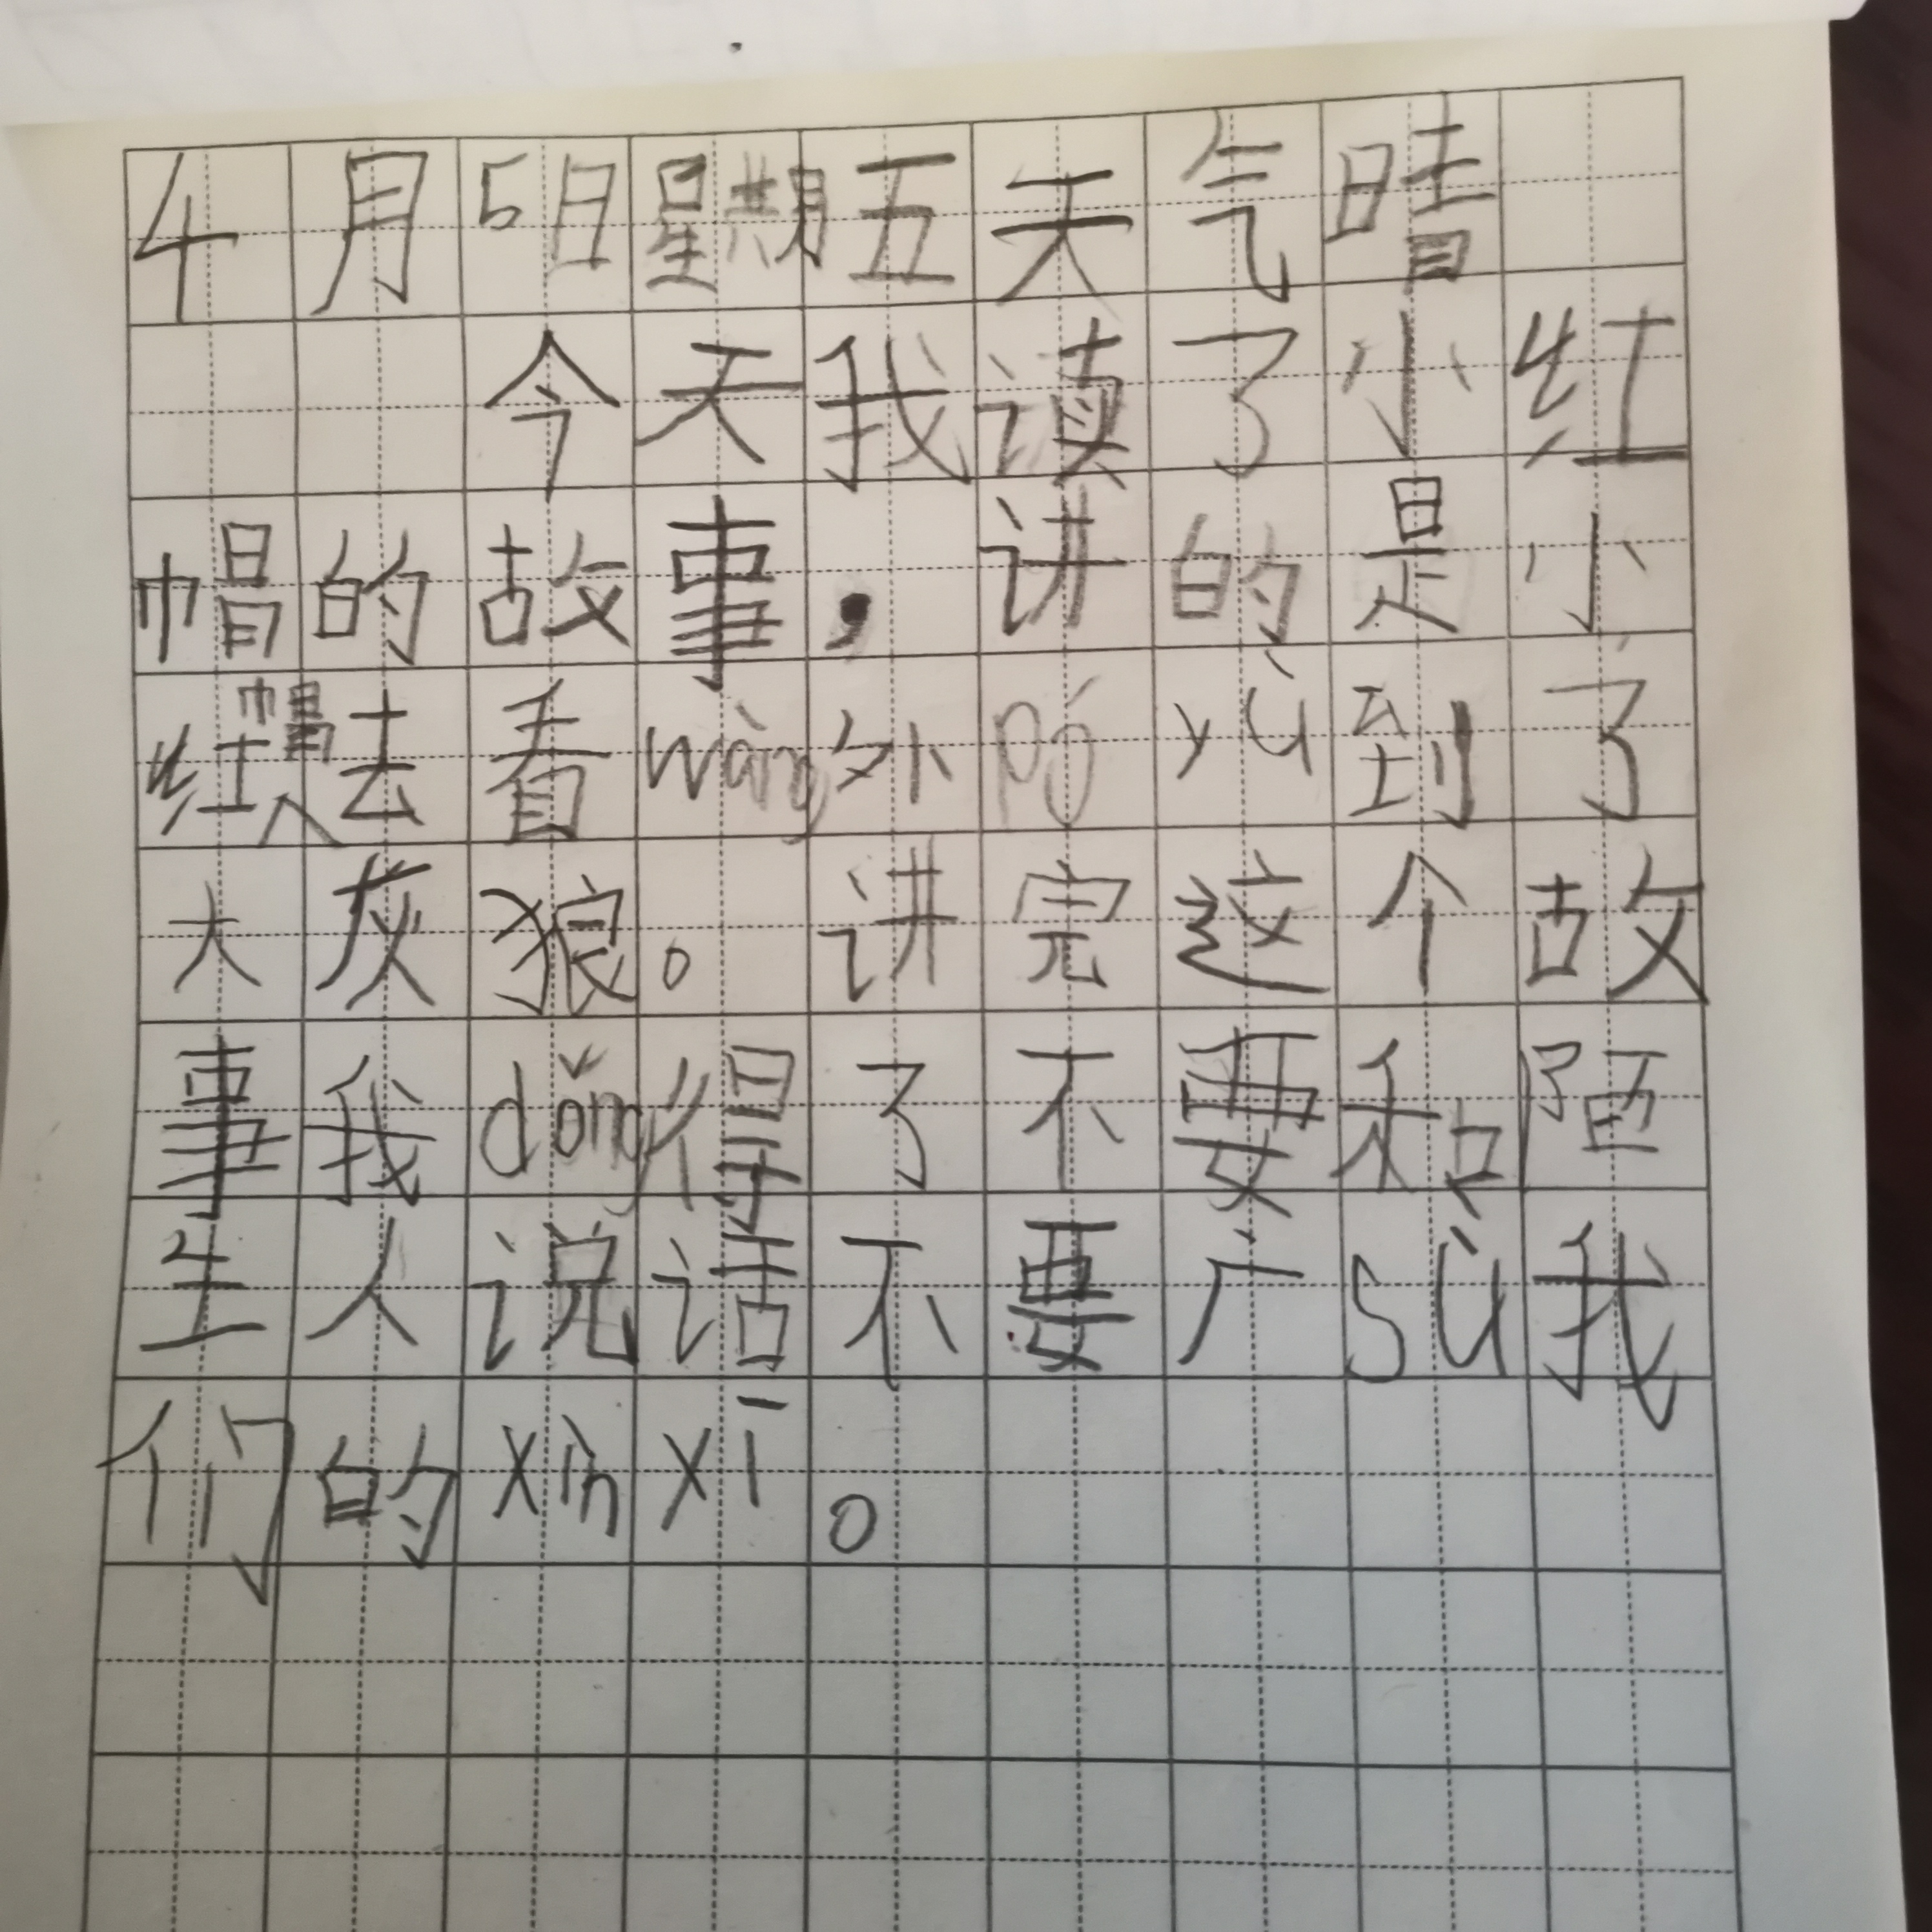 4月5日星期五天气晴
今天我读了小红
帽的故事，讲的是小
红帽去看wàng外pó yù到了
大灰狼。讲完这个故
事我dǒng得了不要和陌
生人说话不要产sù我
们的xìn xī。